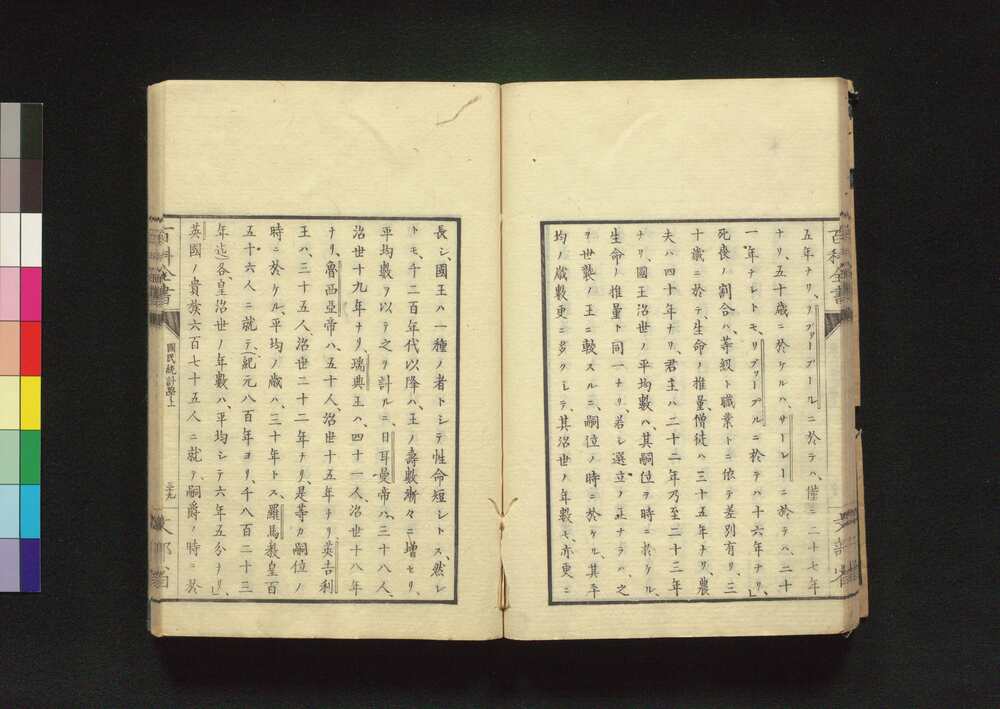 五年ナリ、リブァープールニ於テハ、僅ニ二十七年
ナリ、五十歳ニ於ケルハ、サーレーニ於テハ、二十
一年ナレトモ、リブァープルニ於テハ十六年ナリ、」
死喪ノ割合ハ、等級ト職業トニ依テ差別有リ、三
十歳ニ於テ、生命ノ推量僧徒ハ三十五年ナリ、農
夫ハ四十年ナリ、君主ハ二十二年乃至二十三年
ナリ、國王治世ノ平均數ハ、其嗣位ヲ時ニ於ケル、
生命ノ推量ト同一ナリ、若シ選立ノ王ナラハ、之
ヲ世襲ノ王ニ較スルニ、嗣位ノ時ニ於ケル、其平
均ノ歳數更ニ多クシテ、其治世ノ年數モ、亦更ニ
百科全書
文部省
長シ、國王ハ一種ノ者トシテ性命短シトス、然レ
トモ、千二百年代以降ハ、王ノ壽數漸々ニ增セリ、
平均數ヲ以テ之ヲ計ルニ、日耳曼帝ハ、三十八人、
治世十九年ナリ、瑞典王ハ、四十一人、治世十八年
ナリ、魯西亞帝ハ、五十人、治世十五年ナリ、英吉利
王ハ、三十五人、治世二十二年ナリ、是等カ嗣位ノ
時ニ於ケル、平均ノ歳ハ、三十年トス、羅馬教皇百
五十六人ニ就テ、紀元八百年ヨリ、千八百二十三
年迄各皇治世ノ年數ハ、平均シテ六年五分ナリ、」
英國ノ貴族六百七十五人ニ就テ、嗣爵ノ時ニ於
百科全書
國民統計學上
三九
文部省